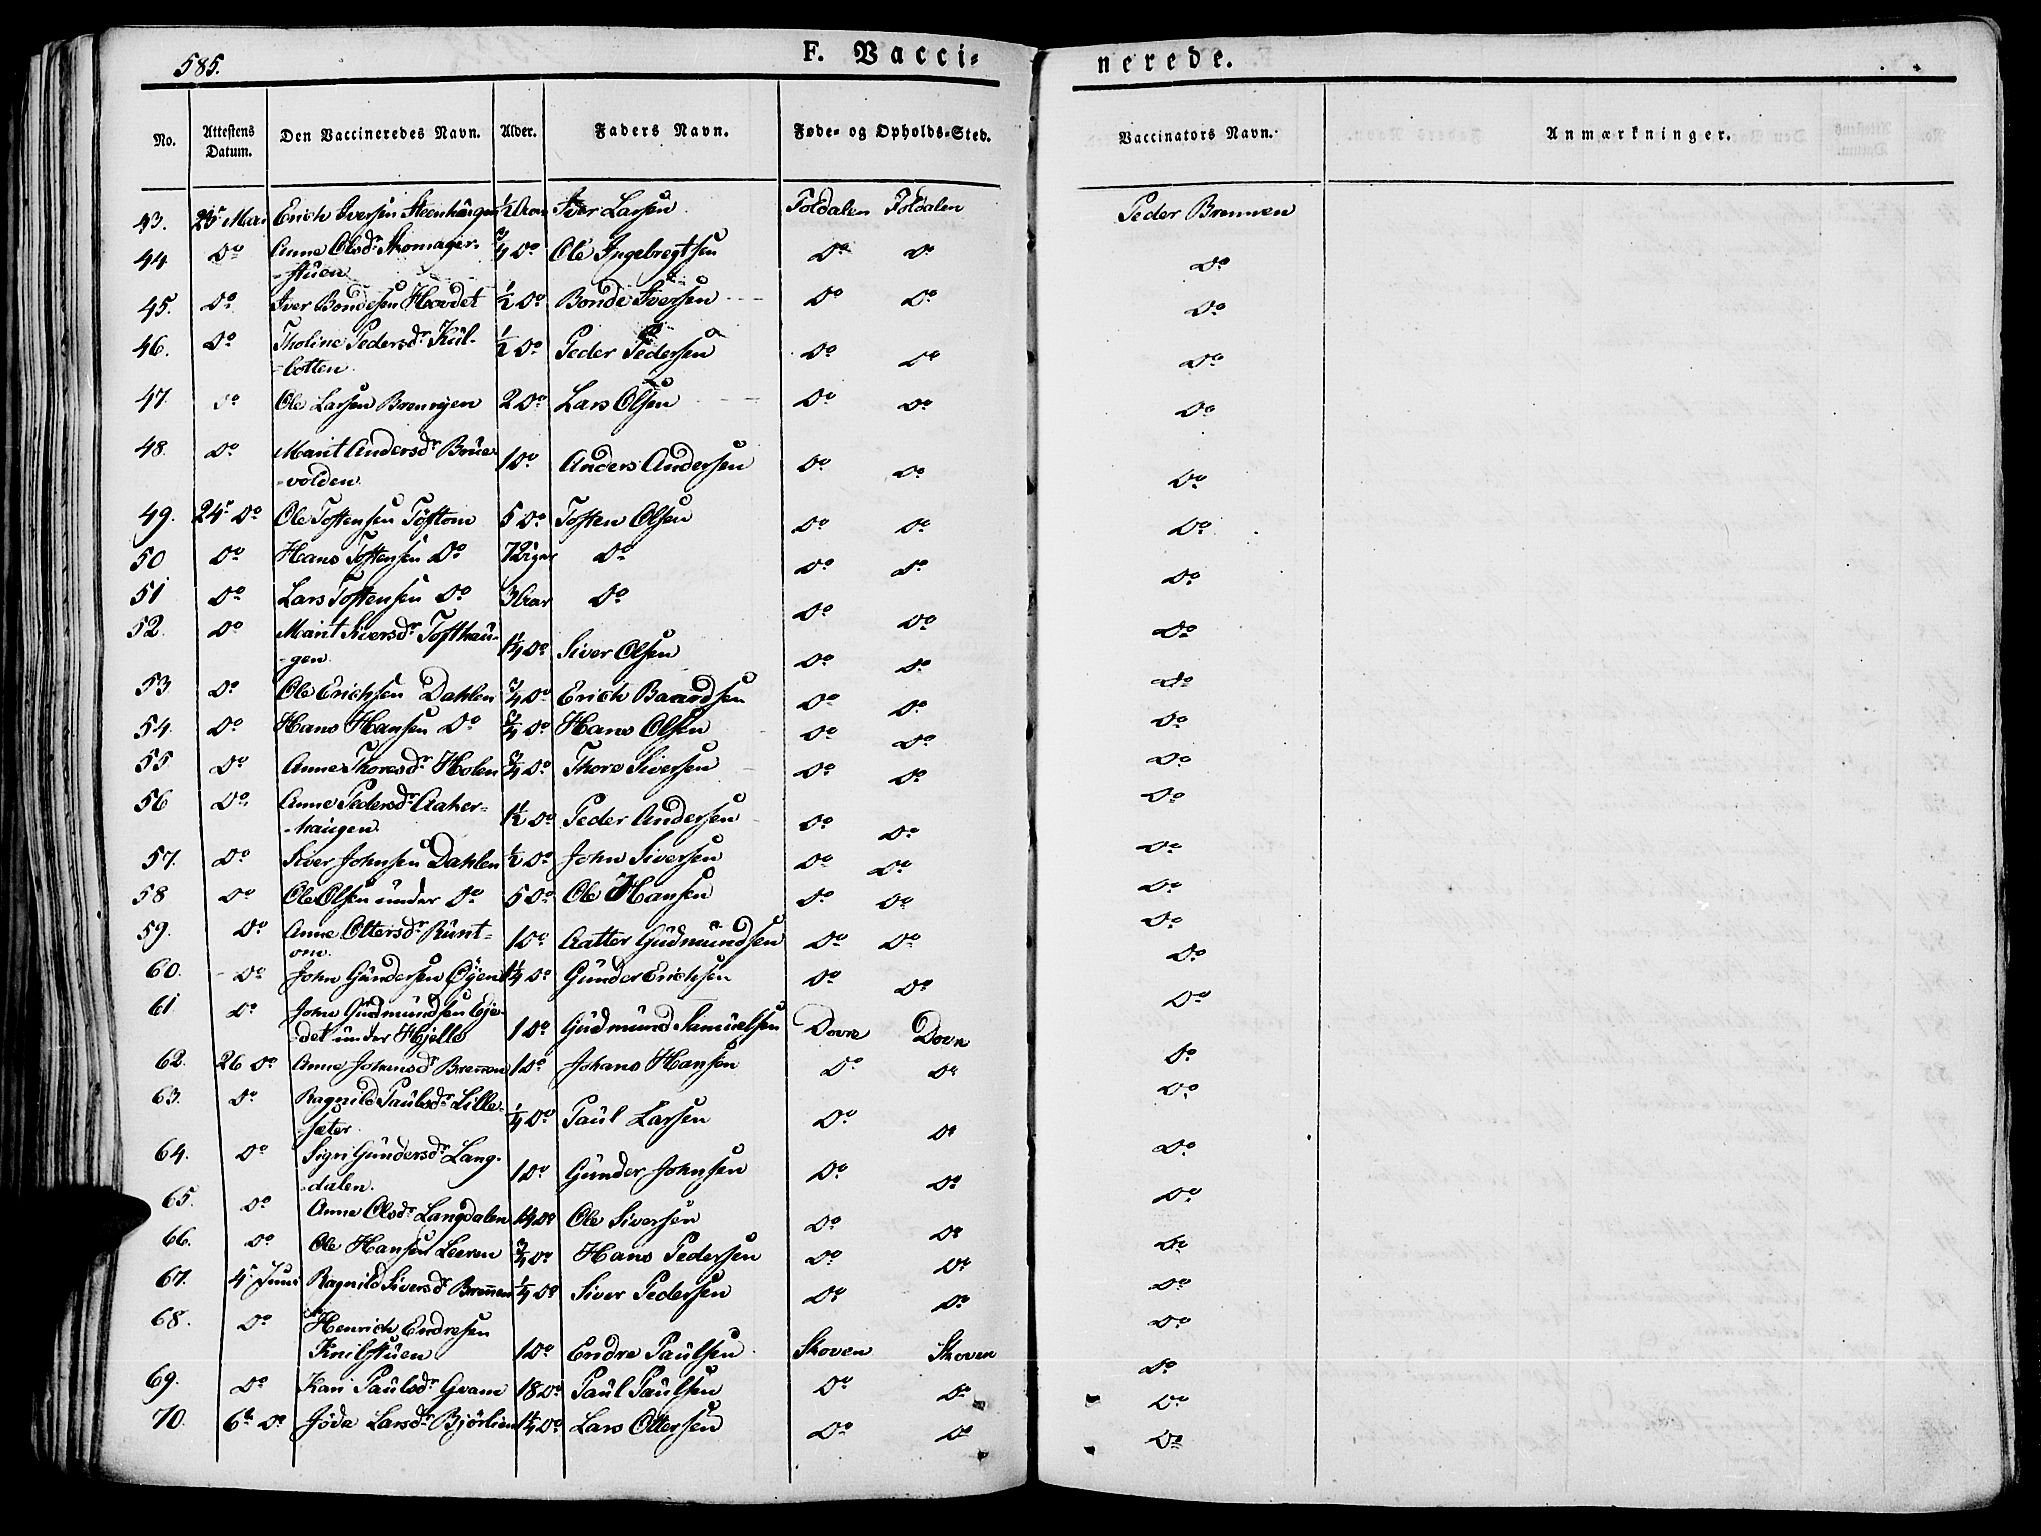 585.
F. Vacci-
nerede.
No. Attestens Datum. Den Vaccineredes Navn. Alder. Faders Navn. Føde- og Opholds-Sted. Vaccinators Navn. Anmærkninger.
43. Mai Erich Iversen Steenhaugen ½ Iver Larsen Foldalen Foldalen Peder Brennen
44 Do Anne Olsdr Skomager- ¾ Do Ole Ingebregtsen Do Do Do
-stuen
45. Do Iver Bondesen Hovdet ½ Do Bonde Iversen Do Do Do
46. Do Tholine Pedersdr Kül- ½ Do Peder Pedersen Do Do Do
-botten.
47. Do Ole Larsen Brenvejen 2 Do Lars Olsen Do Do Do
48. Do Marit Andersdr Brüe- 1 Do Anders Andersen Do Do Do
-volden.
49. 24r Do Ole Toftensen Töftom 5 Do Toften Olsen Do Do Do
50 Do Hans Toftensen Do Do Do Do Do
51 Do Lars Toftensen Do 3 Aar Do Do Do Do
52. Do Marit Siversdr Tofthaü- 1¼ Do Siver Olsen Do Do Do
-gen
53 Do Ole Erichsen Dahlen ¾ Do Erich Baardsen Do Do Do
54. Do Hans Hansen Do ¾ Do Hans Olsen Do Do Do
55 Do Anne Thoresdr Holen ¾ Do Thore Siversen Do Do Do
56 Do Anne Pedersdr Aaker- 1½ Do Peder Andersen Do Do Do
-haugen.
57. Do Siver Johnsen Dahlen ½ Do John Siversen Do Do Do
58 Do Ole Olsen ünder Do 5 Do Ole Hansen Do Do Do
59. Do Anne Ottersdr Rünt- 1 Do Aatter Güdmündsen Do Do Do
om.
60. Do John Gündersen Öyen 1¼ Do Günder Erichsen Do Do Do
61 Do John Güdmündsen Eje- 1 Do Güdmünd Samüelsen Dovre Dovre Do
-det ünder Hjelle
62. 26 Do Anne Johansdr Brennen 1 Do Johans Hansen Do Do Do
63. Do Ragnild Paülsdr Lille- ¼ Do Paül Larsen Do Do Do
-sæter.
64. Do Sigri Gündersdr Lang- 1 Do Günder Johnsen Do Do Do
-dalen.
65. Do Anne Olsdr Langdalen 1¼ Do Ole Siversen Do Do Do
66. Do Ole Hansen Leeren ¾ Do Hans Pedersen Do Do Do
67. 4r Juni Ragnild Siversdr Brennen ¼ Do Siver Pedersen Do Do Do
68. Do Henrich Endresen 1 Do Endre Paülsen Skoven Skoven Do
Knibstüen
69. Do Kari Paülsdr Qvam 18 Do Paül Paülsen Do Do Do
70. 6te Do Jöda Larsdr Bjørlien 1¼ Do Lars Ottersen Do Do Do